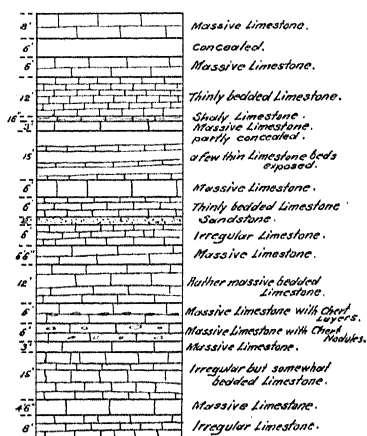 8' Massive Limestone.
6' Concealed.
6' Massive Limestone.
12' Thinly bedded Limestone.
16" Shaly Limestone.
3' Massive Limestone.
partly concealed.
15' a few thin Limestone beds
exposed.
6' Massive Limestone.
6' Thinly bedded Limestone
Sandstone.
6' Irregular Limestone.
6'6" Massive Limestone.
12' Rather massive bedded
Limestone.
6' Massive Limestone with Chert
Layers.
6' Massive Limestone with Chert
Nodules.
3' Massive Limestone.
15' Irregular but somewhat
bedded Limestone.
4'6" Massive Limestone.
8' Irregular Limestone.